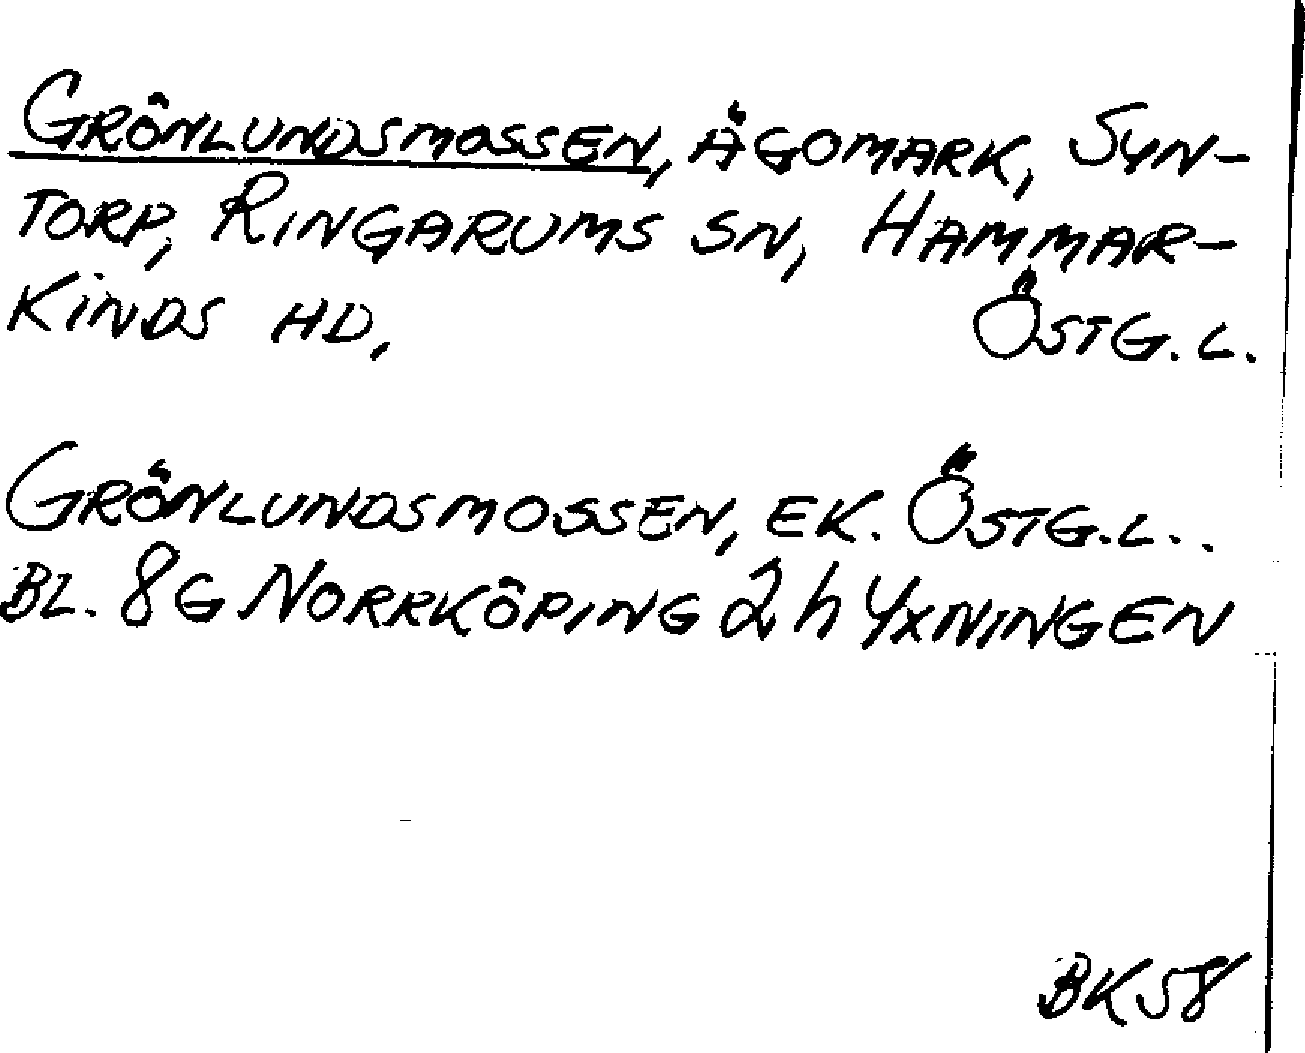 GRÖNLUNDSMOSSEN, ÄGOMARK, SYN-
TORP, RINGARUMS SN, HAMMAR-
KINDS HD, ÖSTG. L.
GRÖNLUNDSMOSSEN, EK. ÖSTG. L..
BL. 8G NORRKÖPING 2h YXNINGEN
BK58